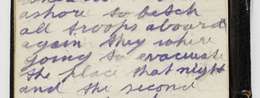 ashore to batch
all troops aboard
again they where
going to evacuate
the place that night
and the second